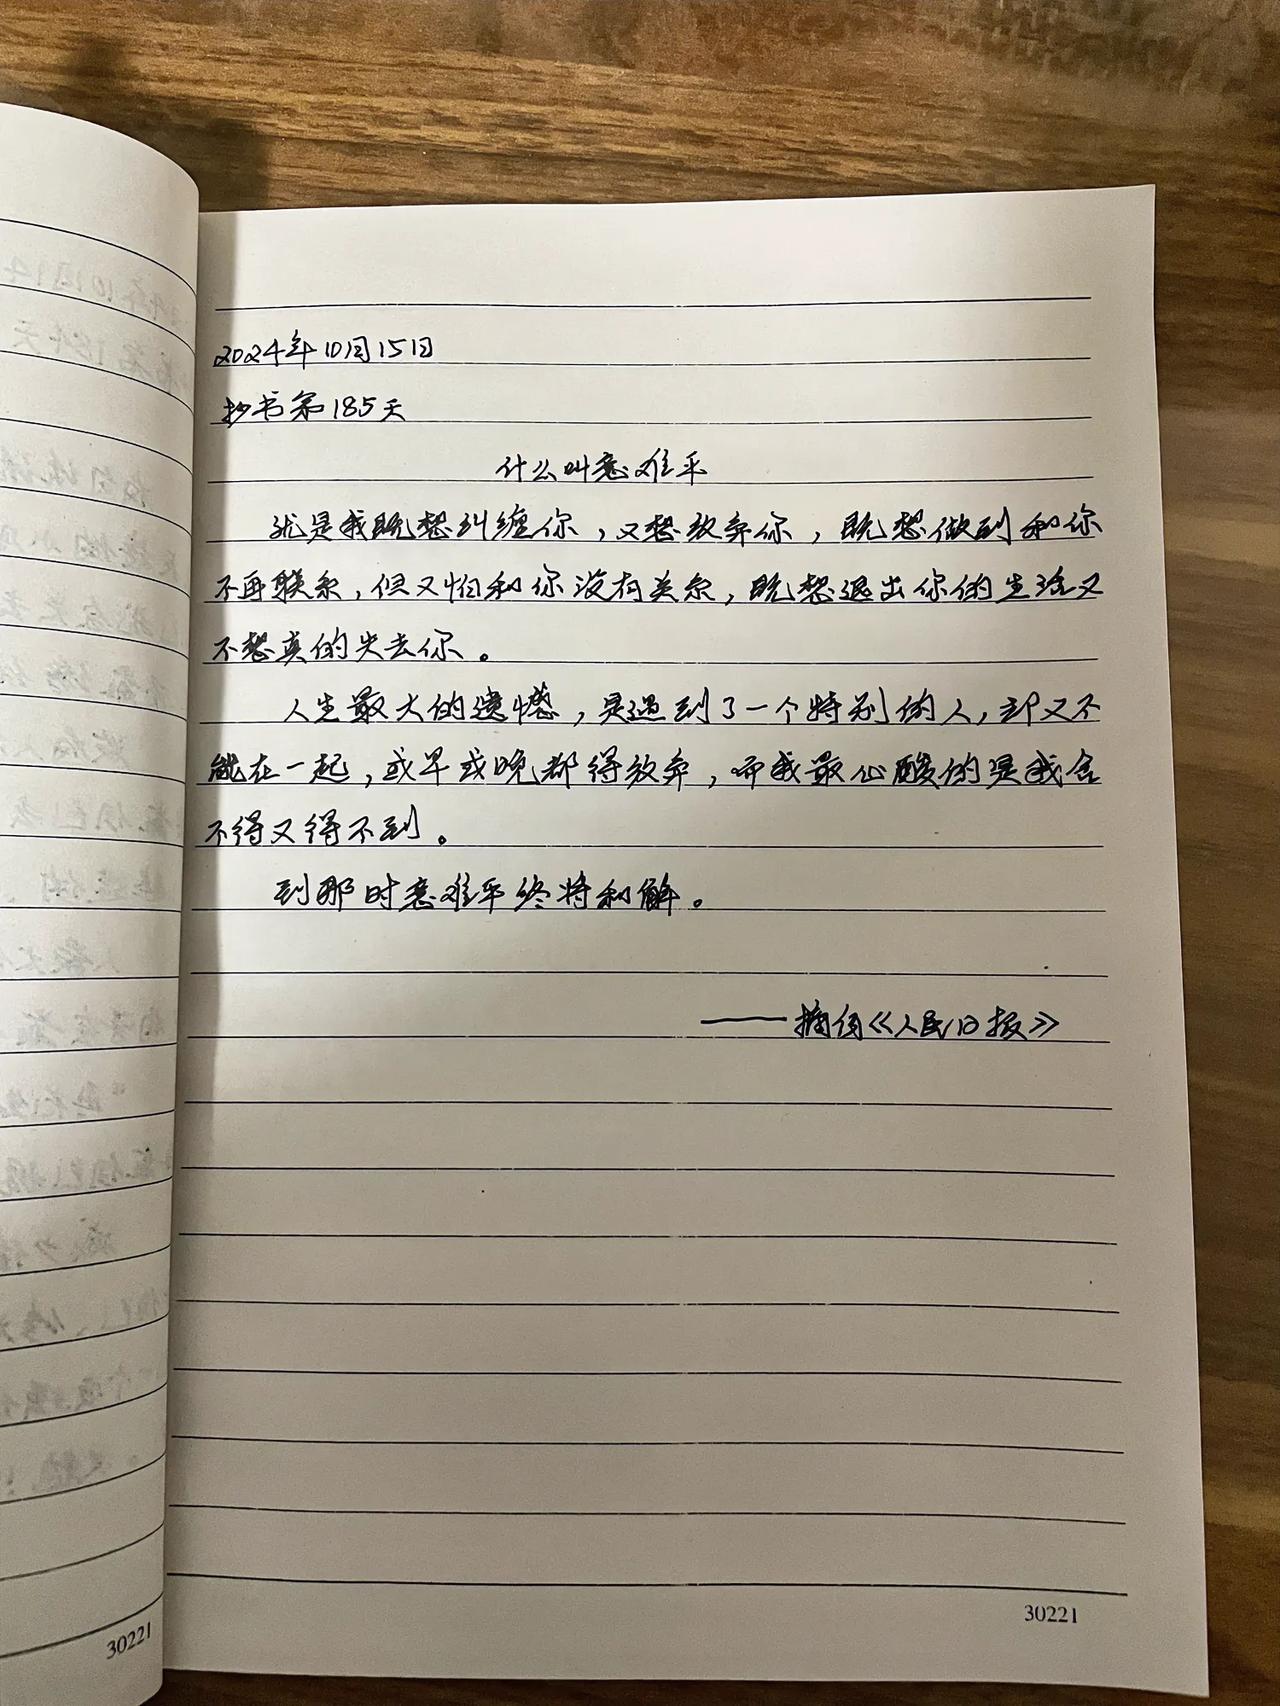 2024年10月15日
抄书第185天
什么叫意难平
就是我既想纠缠你，又想放弃你，既想做到和你
不再联系，但又怕和你没有关系，既想退出你的生活又
不想真的失去你。
人生最大的遗憾，是遇到了一个特别的人，却又不
能在一起，或早或晚都得放弃，而我最心酸的是我舍
不得又得不到。
到那时意难平终将和解。
——摘自《人民日报》
30221
30221